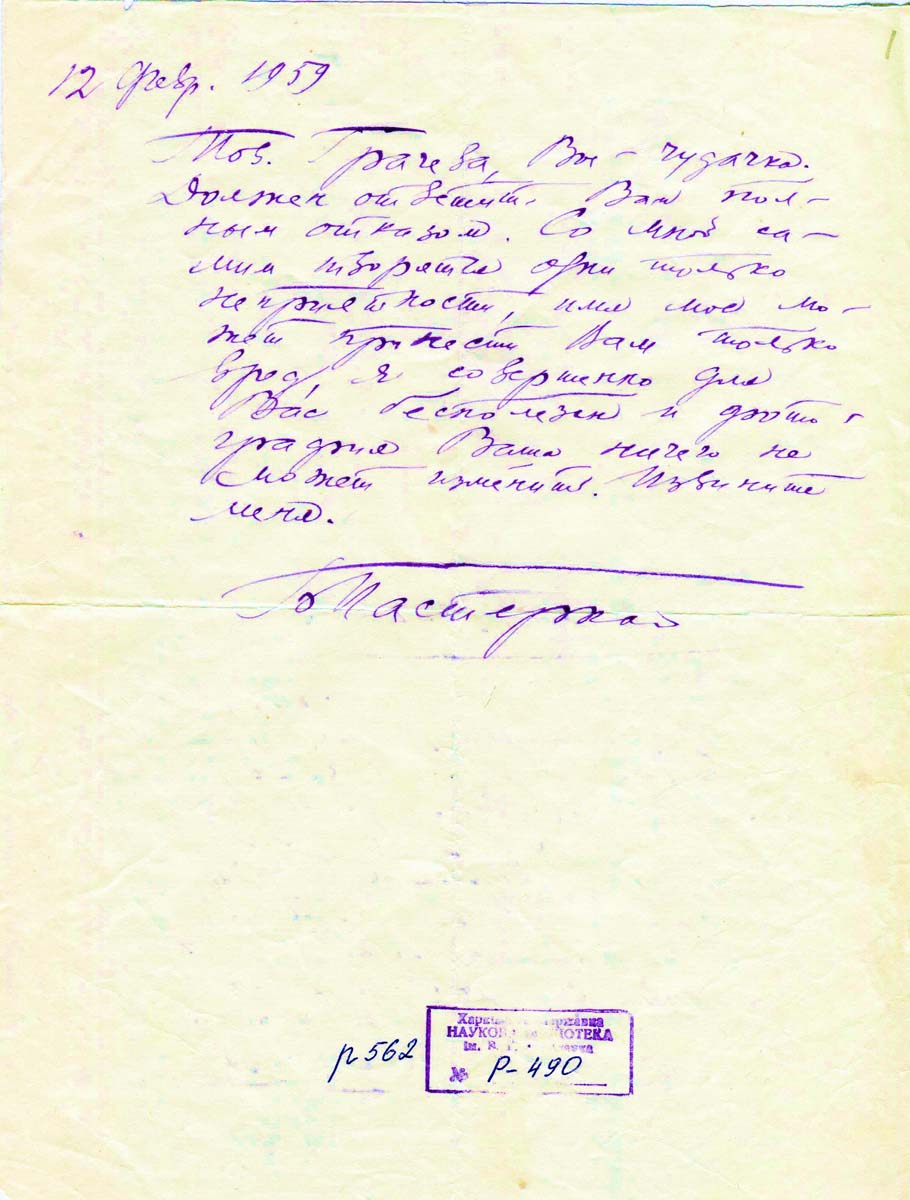 12 февр. 1959
Тов. Грачева, Вы – чудачка.
Должен ответить Вам пол-
ным отказом. Со мной са-
мим творятся одни только
неприятности, имя мое мо-
жет принести Вам только
вред, я совершенно для
Вас бесполезен и фото-
графия Ваша ничего не
может изменить. Извините
меня.
Б Пастернак
НАУКОВА БІБЛІОТЕКА
ім. В. Г.
р 562
Р-490